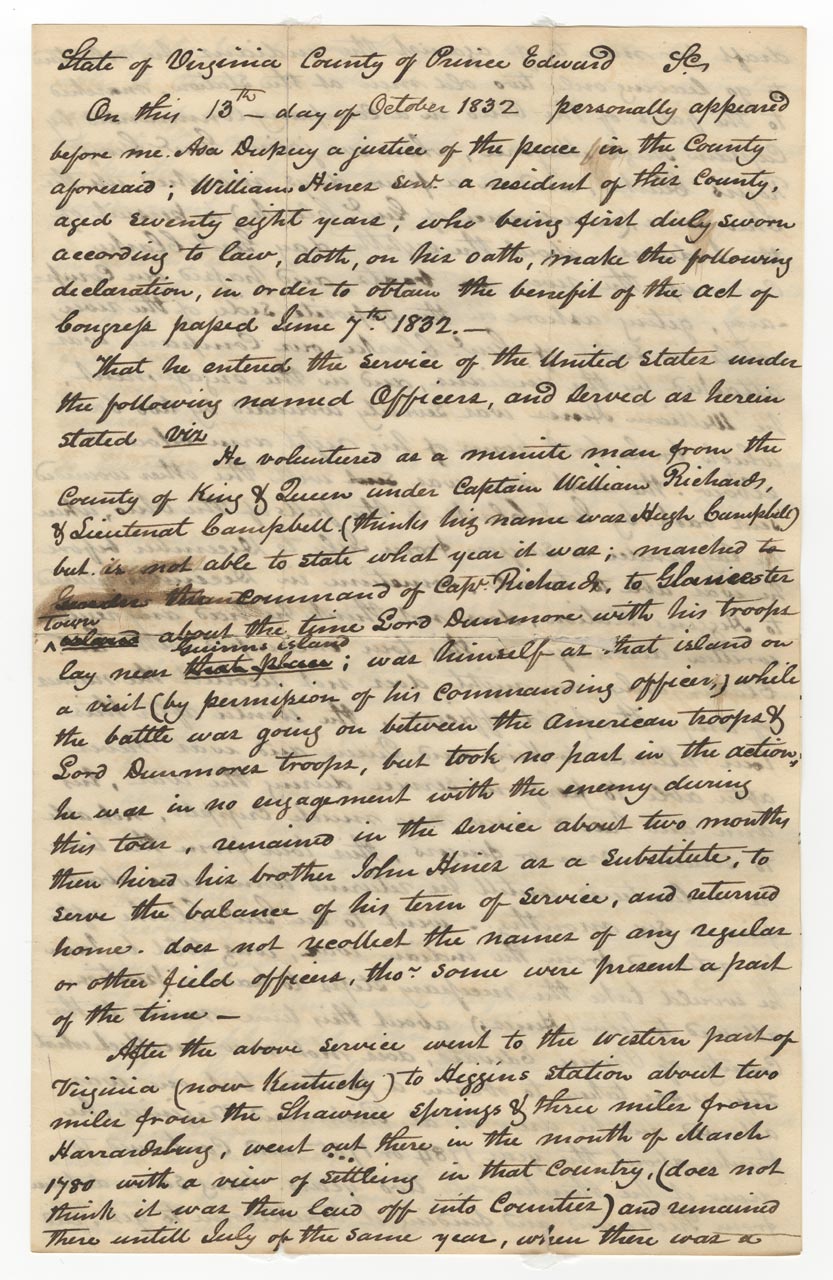 State of Virginia County of Prince Edward Sc.
On this 13th day of October 1832 personally appeared
before me Asa Dupuy a justice of the peace in the County
aforesaid; William Hines Senr. a resident of this County,
aged seventy eight years, who being first duly sworn
according to law, doth, on his oath, make the following
declaration, in order to obtain the benefit of the act of
Congress passed June 7th. 1832.—
That he entered the service of the United States under
the following named Officers, and served as herein
stated viz
He volunteered as a minute man from the
County of King & Queen under Captain William Richards,
& Lieutenat Campbell (thinks his name was Hugh Campbell)
but is not able to state what year it was; marched to
under the command of Capt. Richards, to Gloucester
town
^ island about the time Lord Dunmore with his troops
Guinns island
lay near that place; was himself at that island on
a visit (by permission of his commanding officer,) while
the battle was going on between the American troops &
Lord Dunmores troops, but took no part in the action,
he was in no engagement with the enemy during
this tour, remained in the service about two months
then hired his brother John Hines as a substitute, to
serve the balance of his term of service, and returned
home. does not recollect the names of any regular
or other field officers, tho' some were present a part
of the time —
After the above service went to the western part of
Virginia (now Kentucky) to Higgins station about two
miles from the Shawnee springs & three miles from
Harrardsburg, went out there in the month of March
1780 with a view of settling in that Country, (does not
think it was then laid off into Counties) and remained
there untill July of the same year, when there was a